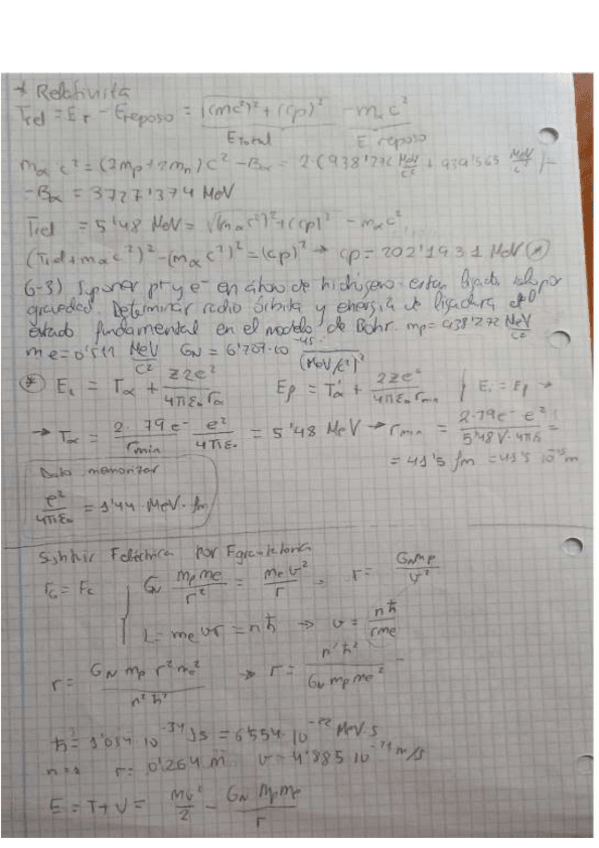 * Relativista
Trel = ET - Ereposo = √(mc²)² + (cp)² - mα c²
Etotal E reposo
mα c² = (2mp + 2mn) c² - Bα = 2(938'272 MeV/c² + 939'565 MeV/c²) -
- Bα = 3727'374 MeV
Trel = 5'48 MeV = √(mα c²)² + (cp)² - mα c²
(Trel + mα c²)² - (mα c²)² = (cp)² → cp = 202'1931 MeV (*)
6-3) Suponer p+ y e- en átomo de hidrógeno están ligados solo por
gravedad. Determinar radio órbita y energía de ligadura del
estado fundamental en el modelo de Bohr. mp = 938'272 MeV/c²
me = 0'511 MeV/c² GN = 6'707·10^-45 / (MeV/c²)²
(*) Ei = Tα + z2e²/4πε₀rα Ep = T'α + 2ze²/4πε₀rmin | Ei = Ep →
→ Tα = 2·79e-/rmin e²/4πε₀ = 5'48 MeV → rmin = 2·79e- e²/5'48V·4πε₀ =
= 41'5 fm = 41'5 10^-15 m
Dato memorizar
e²/4πε₀ = 1'44 MeV·fm
Sustituir Feléctrica por Fgravitatoria
FG = Fc { GN mp me/r² = me v²/r , r = GN mp/v²
L = me v r = nħ → v = nħ/rme
r = GN mp r² me²/n²ħ² → r = n²ħ²/GN mp me²
ħ = 1'054·10^-34 Js = 6'554·10^-22 MeV·s
r = 0'264 m v = 4'385 10^-34 m/s
E = T + V = mv²/2 - GN mp me/r